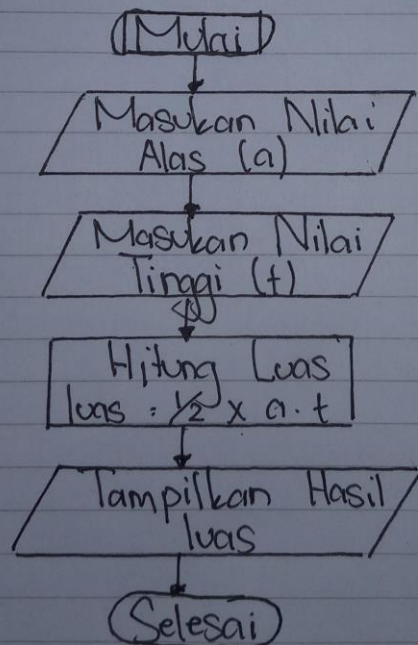 Mulai
Masukan Nilai
Alas (a)
Masukan Nilai
Tinggi (t)
Hitung Luas
luas = 1/2 x a . t
Tampilkan Hasil
luas
Selesai